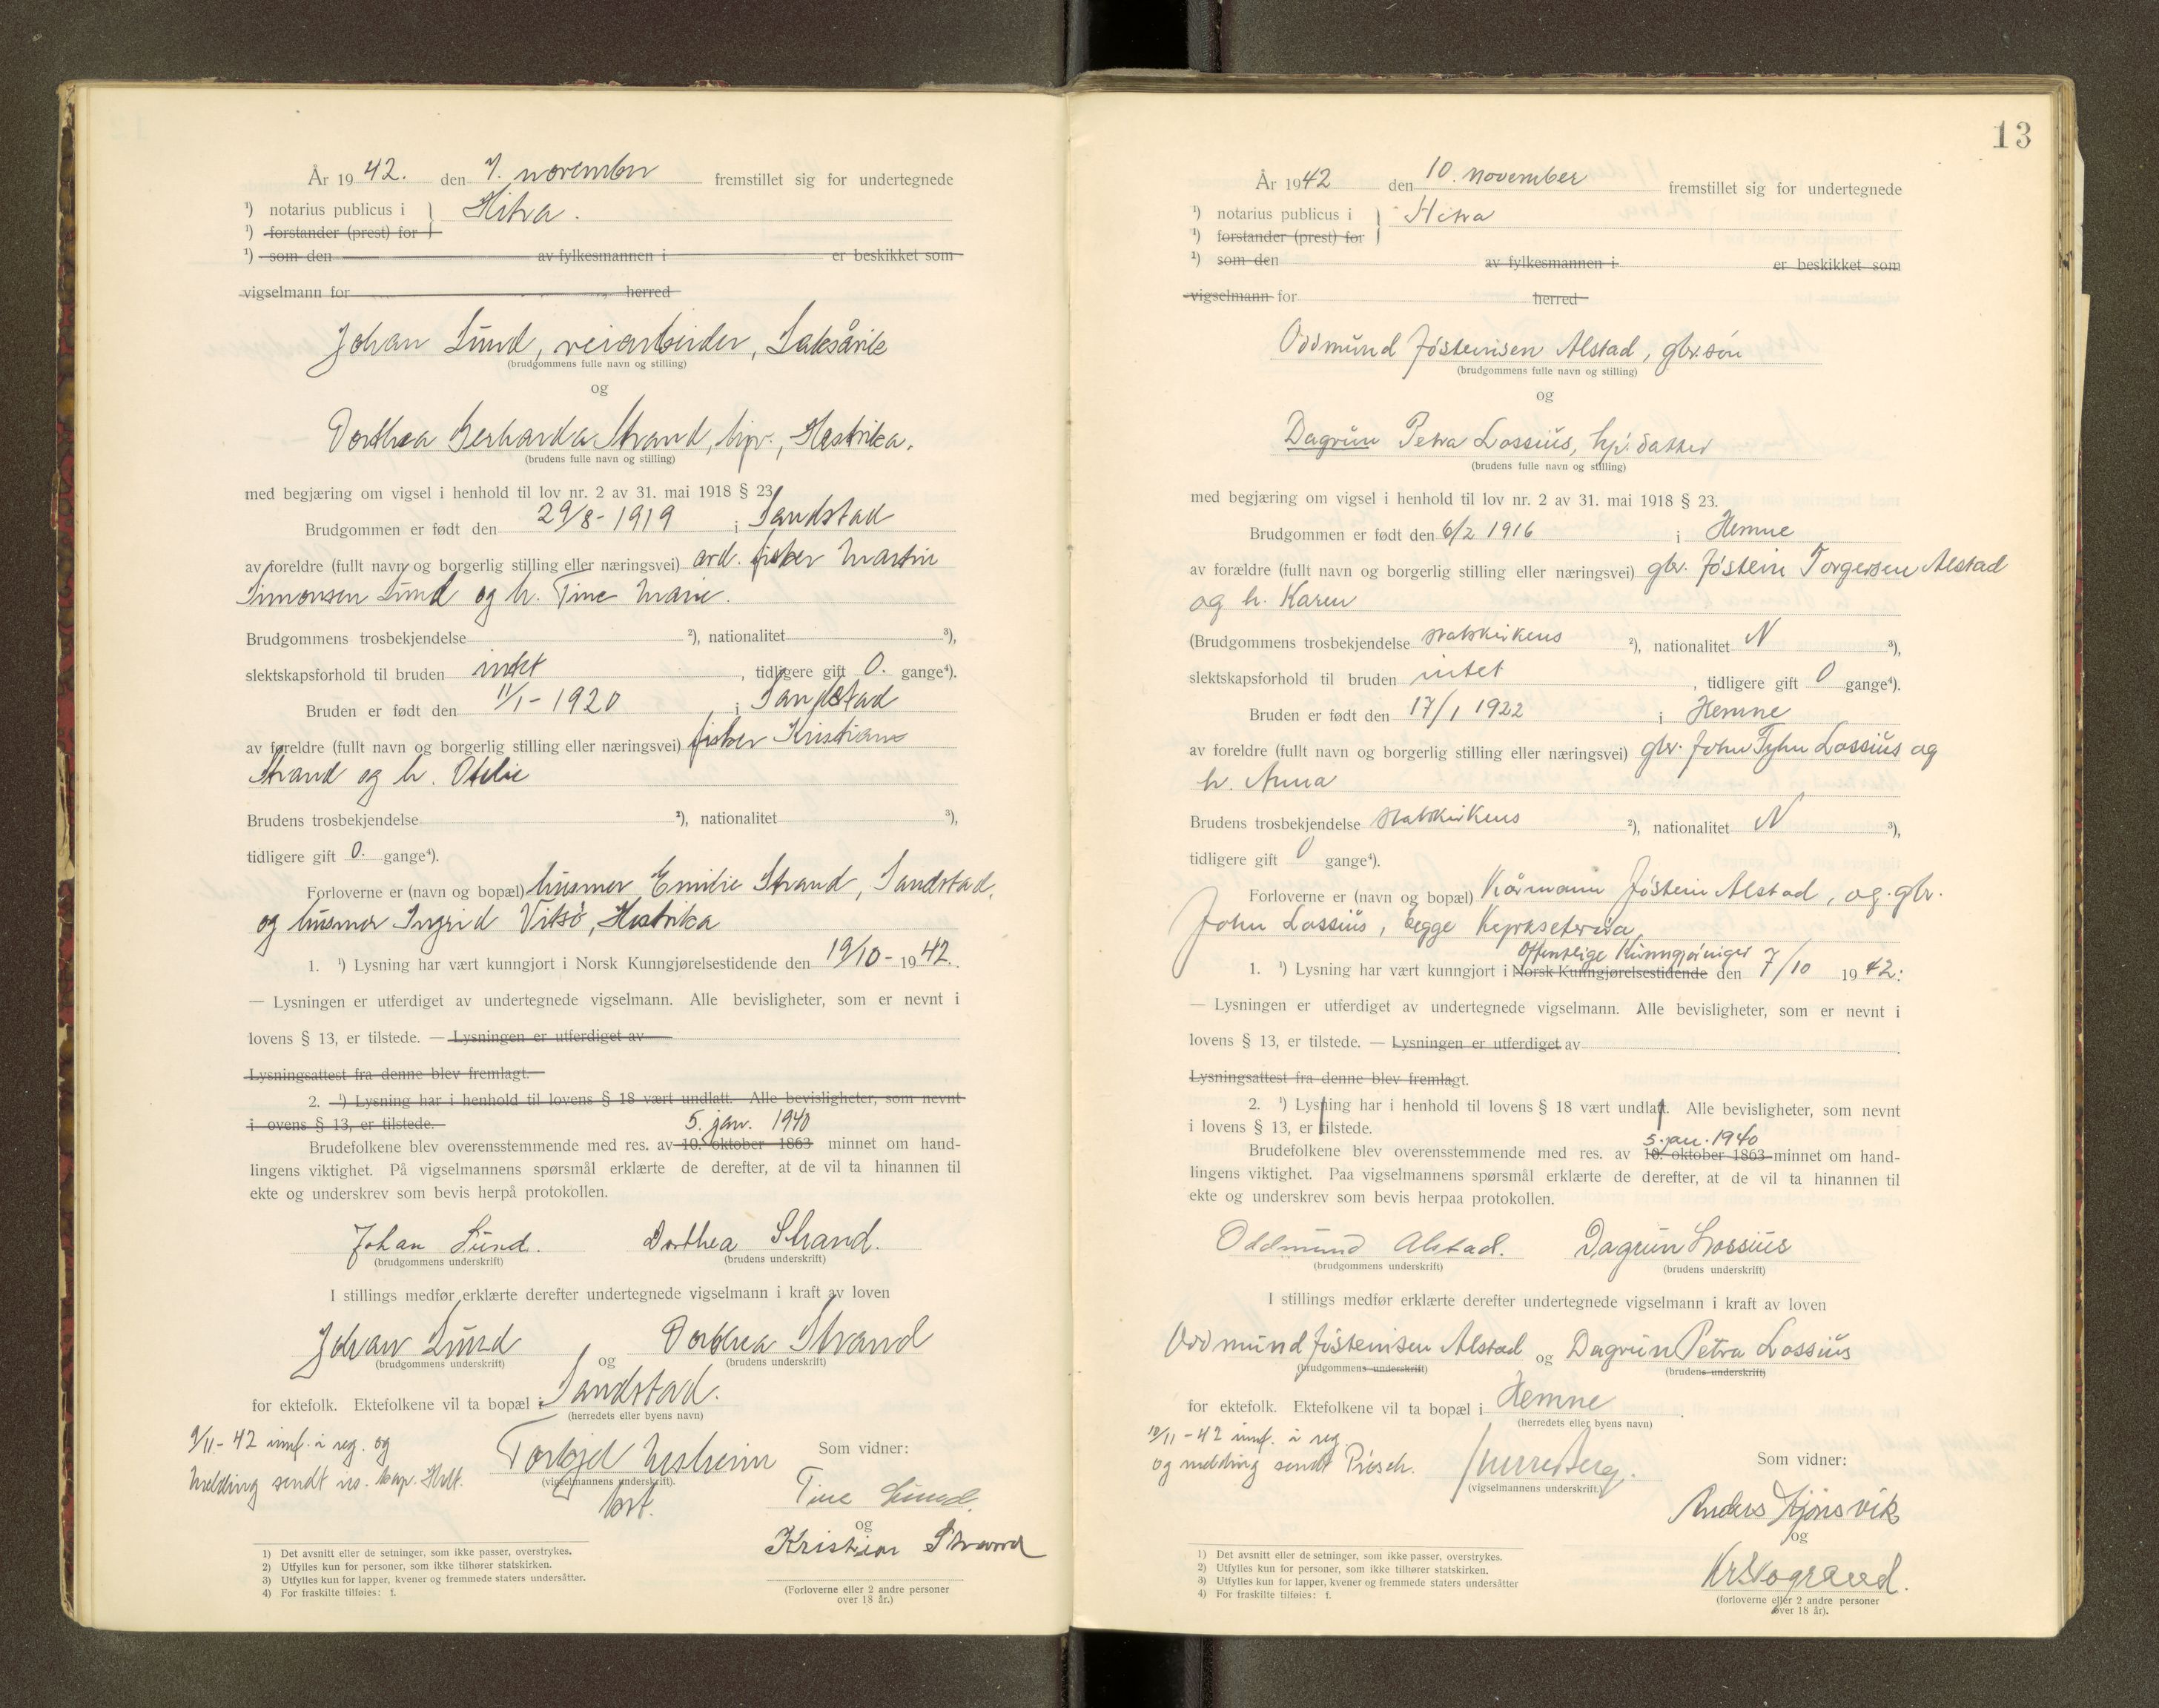 År 1942. den 7. november fremstillet sig for undertegnede
¹) notarius publicus i } Hitra.
¹) forstander (prest) for
¹) som den av fylkesmannen i er beskikket som
vigselmann for herred
Johan Lund, veiarbeider, Laksåvik
(brudgommens fulle navn og stilling)
og
Dorthea Gerharda Strand, hjv., Hestvika.
(brudens fulle navn og stilling)
med begjæring om vigsel i henhold til lov nr. 2 av 31. mai 1918 § 23
Brudgommen er født den 29/8-1919 i Sandstad
av foreldre (fullt navn og borgerlig stilling eller næringsvei) ard. fisker Martin
Simonsen Lund og h. Tine Marie.
Brudgommens trosbekjendelse ²), nationalitet ³),
slektskapsforhold til bruden intet, tidligere gift 0. gange⁴).
Bruden er født den 11/1-1920 i Sandstad
av føreldre (fullt navn og borgerlig stilling eller næringsvei) fisker Kristian
Strand og h. Otelie
Brudens trosbekjendelse ²), nationalitet ³),
tidligere gift 0. gange⁴).
Forloverne er (navn og bopæl) husmor Emilie Strand, Sandstad,
og husmor Ingrid Vitsø, Hestvika
1. ¹) Lysning har vært kunngjort i Norsk Kunngjørelsestidende den 19/10-1942.
— Lysningen er utferdiget av undertegnede vigselmann. Alle bevisligheter, som er nevnt i
lovens § 13, er tilstede. — Lysningen er utferdiget av
Lysningsattest fra denne blev fremlagt.
2. ¹) Lysning har i henhold til lovens § 18 vært undlatt. Alle bevisligheter, som nevnt
i ovens § 13, er tilstede.
5. jan. 1940
Brudefolkene blev overensstemmende med res. av 10. oktober 1863 minnet om hand-
lingens viktighet. På vigselmannens spørsmål erklærte de derefter, at de vil ta hinannen til
ekte og underskrev som bevis herpå protokollen.
Johan Lund. Dorthea Strand.
(brudgommens underskrift) (brudens underskrift)
I stillings medfør erklærte derefter undertegnede vigselmann i kraft av loven
Johan Lund og Dorthea Strand
(brudgommens underskrift) (brudens underskrift)
for ektefolk. Ektefolkene vil ta bopæl i Sandstad.
(herredets eller byens navn)
9/11-42 innf. i reg. og
melding sendt
(vigselmannens underskrift).
Som vidner:
Tine Lund
og
Kristian Strand
(Forloverne eller 2 andre personer
over 18 år.)
1) Det avsnitt eller de setninger, som ikke passer, overstrykes.
2) Utfylles kun for personer, som ikke tilhører statskirken.
3) Utfylles kun for lapper, kvener og fremmede staters undersåtter.
4) For fraskilte tilføies: f.
13
År 1942 den 10. november fremstillet sig for undertegnede
¹) notarius publicus i } Hitra
¹) forstander (prest) for
¹) som den av fylkesmannen i er beskikket som
vigselmann for herred
Oddmund Jósteinsen Alstad, gbr.søn
(brudgommens fulle navn og stilling)
og
Dagrun Petra Lossius, hj. datter
(brudens fulle navn og stilling)
med begjæring om vigsel i henhold til lov nr. 2 av 31. mai 1918 § 23.
Brudgommen er født den 6/2 1916 i Hemne
av forældre (fullt navn og borgerlig stilling eller næringsvei) gbr. Jóstein Torgersen Alstad
og h. Karen
(Brudgommens trosbekjendelse statskirkens ²), nationalitet N ³),
slektskapsforhold til bruden intet, tidligere gift 0 gange⁴).
Bruden er født den 17/1 1922 i Hemne
av foreldre (fullt navn og borgerlig stilling eller næringsvei) gbr. John Tyhn Lossius og
h. Anna
Brudens trosbekjendelse statskirkens ²), nationalitet N ³),
tidligere gift 0 gange⁴).
Forloverne er (navn og bopæl) Kårmann Jóstein Alstad, og gbr.
John Lossius, begge
Offentlige Kunngjøringer
1. ¹) Lysning har vært kunngjort i Norsk Kunngjørelsestidende den 7/10 1942:
— Lysningen er utferdiget av undertegnede vigselmann. Alle bevisligheter, som er nevnt i
lovens § 13, er tilstede. — Lysningen er utferdiget av
Lysningsattest fra denne blev fremlagt.
2. ¹) Lysning har i henhold til lovens § 18 vært undlatt. Alle bevisligheter, som nevnt
i lovens § 13, er tilstede.
5. jan. 1940
Brudefolkene blev overensstemmende med res. av 10. oktober 1863 minnet om hand-
lingens viktighet. Paa vigselmannens spørsmål erklærte de derefter, at de vil ta hinannen til
ekte og underskrev som bevis herpaa protokollen.
Oddmund Alstad. Dagrun Lossius
(brudgommens underskrift) (brudens underskrift)
I stillings medfør erklærte derefter undertegnede vigselmann i kraft av loven
Oddmund Jósteinsen Alstad og Dagrun Petra Lossius
(brudgommens underskrift) (brudens underskrift)
for ektefolk. Ektefolkene vil ta bopæl i Hemne
(herredets eller byens navn)
10/11-42 innf. i reg.
og melding sendt
(vigselmannens underskrift.)
Som vidner:
Anders
og
(forloverne eller 2 andre personer
over 18 år).
1) Det avsnitt eller de setninger, som ikke passer, overstrykes.
2) Utfylles kun for personer, som ikke tilhører statskirken.
3) Utfylles kun for lapper, kvener og fremmede staters undersåtter
4) For fraskilte tilføies: f.